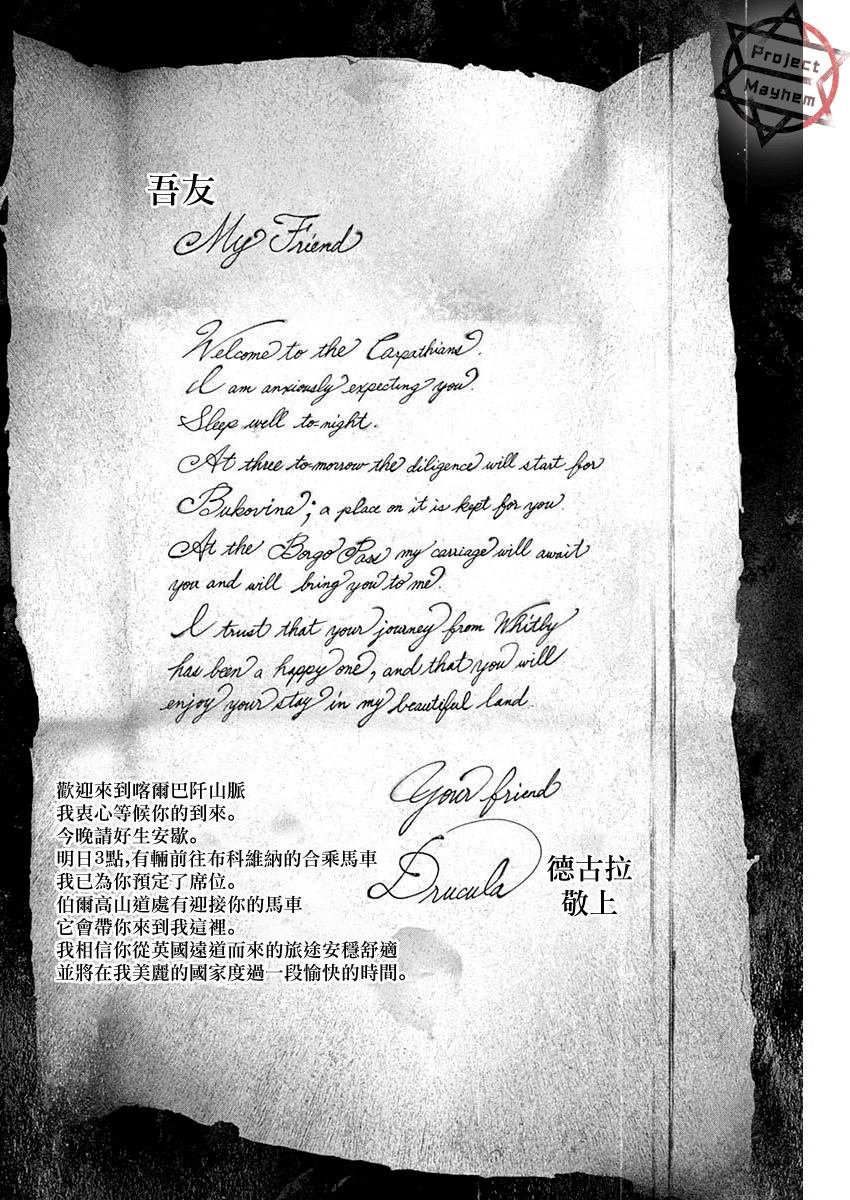 Project
Mayhem
吾友
My Friend
Welcome to the Carpathians.
I am anxiously expecting you.
Sleep well to-night.
At three to-morrow the diligence will start for
Bukovina; a place on it is kept for you.
At the Borgo Pass my carriage will await
you and will bring you to me.
I trust that your journey from Whitby
has been a happy one, and that you will
enjoy your stay in my beautiful land.
Your friend
Drucula
德古拉
敬上
歡迎來到喀爾巴阡山脈
我衷心等候你的到來。
今晚請好生安歇。
明日3點,有輛前往布科維納的合乘馬車
我已為你預定了席位。
伯爾高山道處有迎接你的馬車
它會帶你來到我這裡。
我相信你從英國遠道而來的旅途安穩舒適
並將在我美麗的國家度過一段愉快的時間。